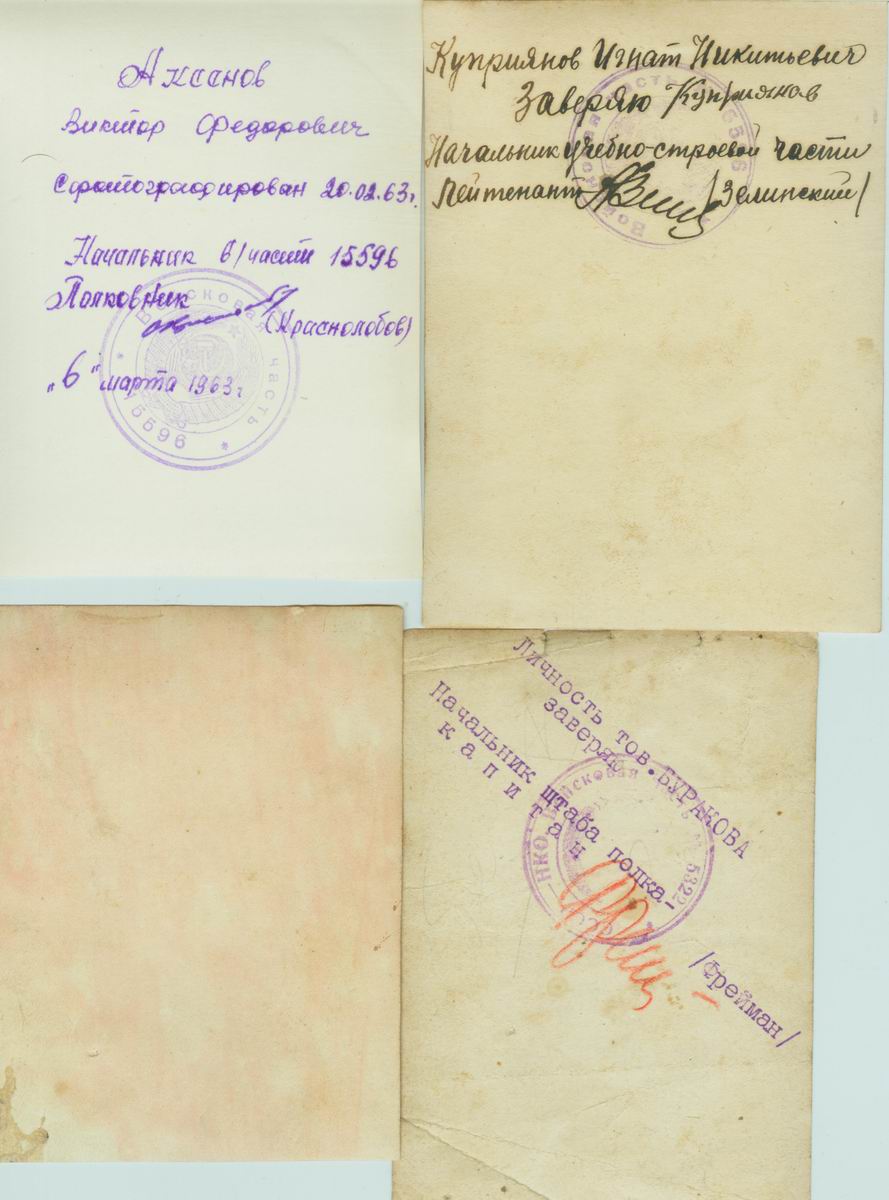 Аксанов
Виктор Федорович
Сфотографирован 20.02.63г.
Начальник в/части 15596
Полковник
(Краснолобов)
"6" марта 1963г
Войсковая часть
15596
Куприянов Игнат Никитьевич
Заверяю Куприянов
Начальник учебно-строевой части
Лейтенант /Зелинский/
Личность тов.БУРАКОВА
заверяю
Начальник штаба полка-
капитан
/Фрейман/
НКО Войсковая часть